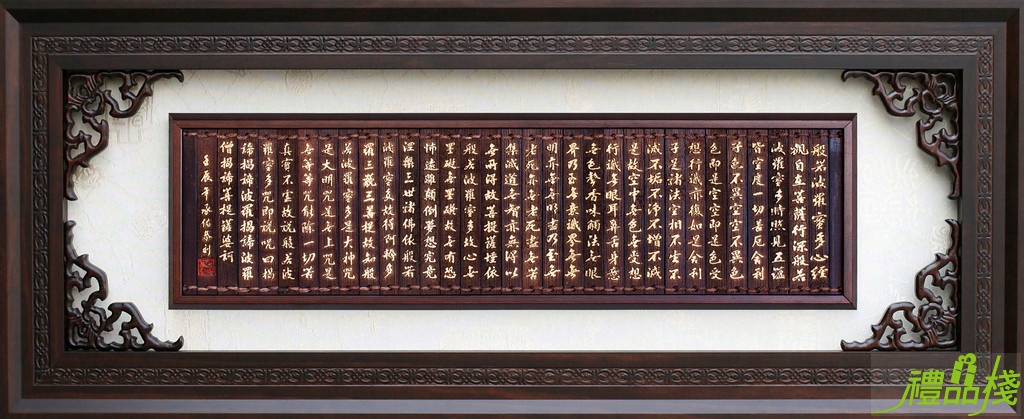 般若波羅蜜多心經
觀自在菩薩行深般若
波羅蜜多時照見五蘊
皆空度一切苦厄舍利
子色不異空空不異色
色即是空空即是色受
想行識亦復如是舍利
子是諸法空相不生不
滅不垢不淨不增不減
是故空中無色無受想
行識無眼耳鼻舌身意
無色聲香味觸法無眼
界乃至無意識界無無
明亦無無明盡乃至無
老死亦無老死盡無苦
集滅道無智亦無得以
無所得故菩提薩埵依
般若波羅蜜多故心無
罣礙無罣礙故無有恐
怖遠離顛倒夢想究竟
涅槃三世諸佛依般若
波羅蜜多故得阿耨多
羅三藐三菩提故知般
若波羅蜜多是大神咒
是大明咒是無上咒是
無等等咒能除一切苦
真實不虛故說般若波
羅蜜多咒即說咒曰揭
諦揭諦波羅揭諦波羅
僧揭諦菩提薩婆訶
辰年
禮品棧